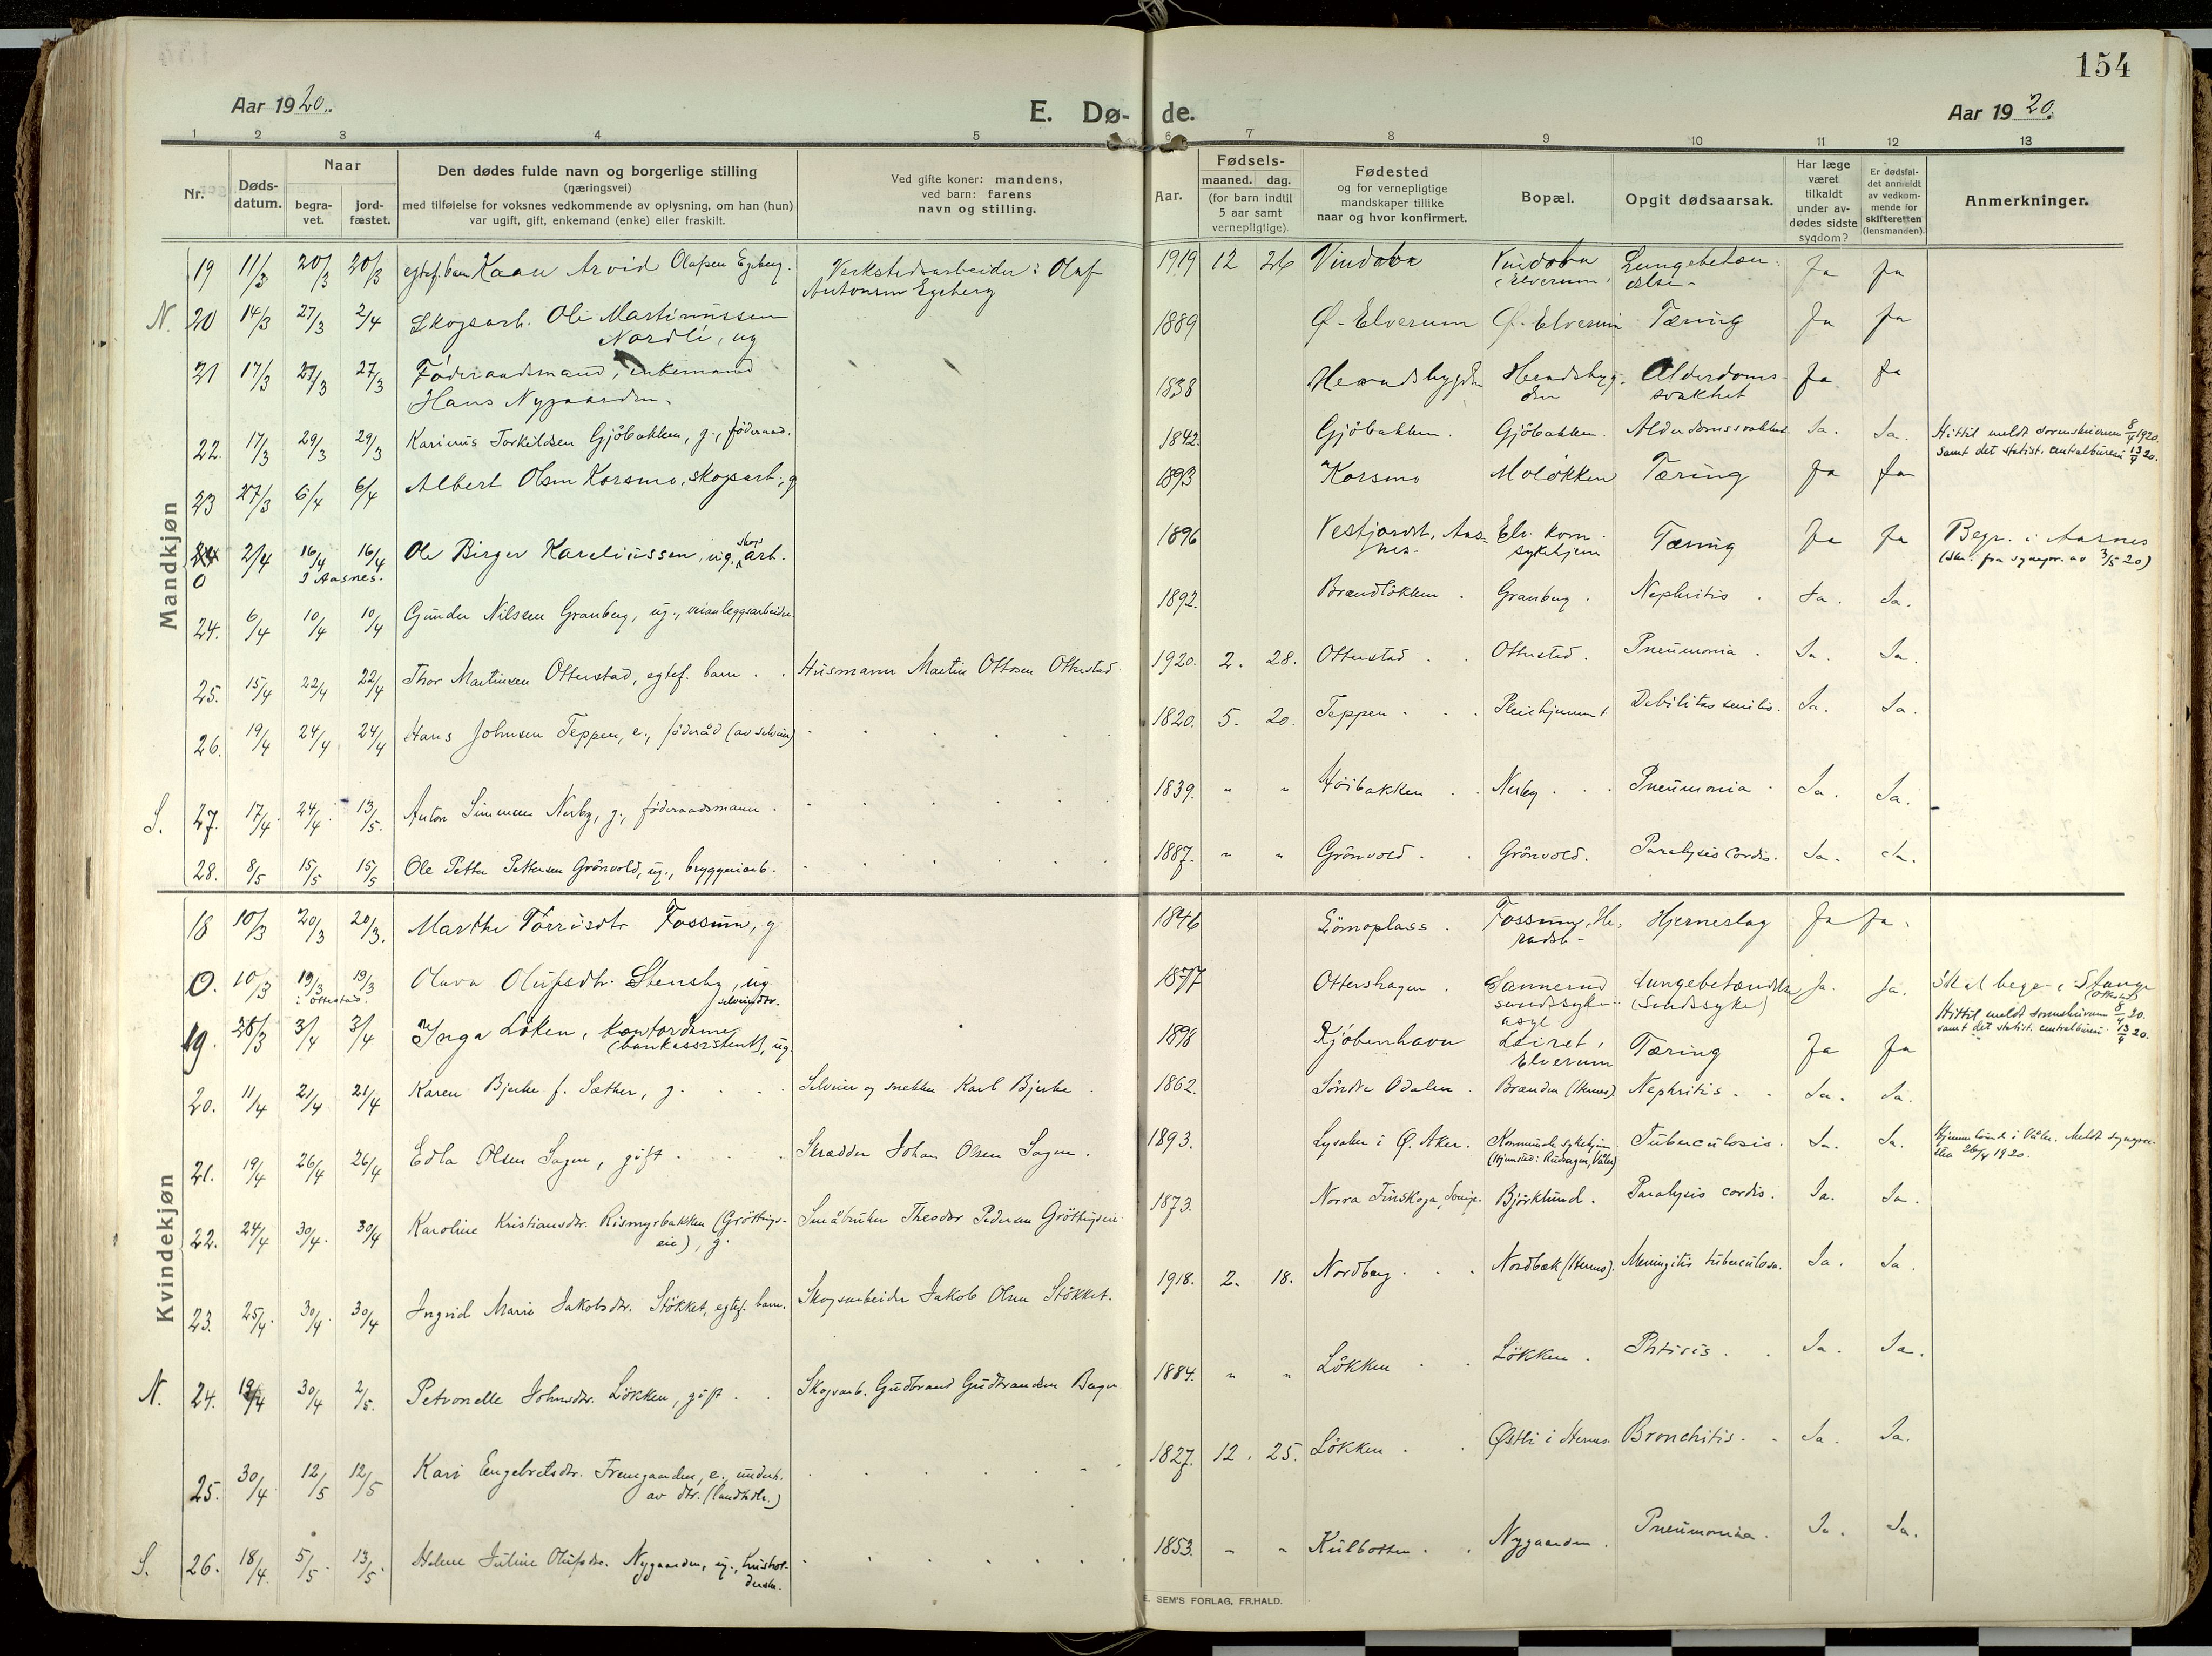 154
Aar 1920.
E. Dø-
de.
Aar 1920.
1 2 3 4 5 6 7 8 9 10 11 12 13
Nr.
Døds-
datum.
Naar
begra-
vet.
jord-
fæstet.
Den dødes fulde navn og borgerlige stilling
(næringsvei)
med tilføielse for voksnes vedkommende av oplysning, om han (hun)
var ugift, gift, enkemand (enke) eller fraskilt.
Ved gifte koner: mandens,
ved barn: farens
navn og stilling.
Aar.
Fødsels-
maaned. dag.
(for barn indtil
5 aar samt
vernepligtige).
Fødested
og for vernepligtige
mandskaper tillike
naar og hvor konfirmert.
Bopæl.
Opgit dødsaarsak.
Har læge
været
tilkaldt
under av-
dødes sidste
sygdom?
Er dødsfal-
det anmeldt
av vedkom-
mende for
skifteretten
(lensmanden).
Anmerkninger.
Mandkjøn
19 11/3 20/3 20/3 egtef. barn Kaare Arvid Olafsen Egeberg. Verkstedsarbeider: Olaf 1919 12 26 Vindobu Vindobu Lungebetæn- Ja Ja
Antonsen Egeberg (Elverum) delse
N. 20 14/3 27/3 2/4 Skogsarb. Ole Martinussen 1889 Ø. Elverum Ø. Elverum Tæring Ja Ja
Nordli, ug
21 17/3 27/3 27/3 Føderaadsmand, enkemand 1838 Heradsbygden Heradsbyg- Alderdoms- Ja Ja
Hans Nygaarden. den svakhet
22. 17/3 29/3 29/3 Karinus Torkildsen Gjöbakken, g., föderaad. 1842. Gjöbakken. Gjöbakken. Alderdomssvakhet. Ja. Ja. Hittil meldt sorenskriveren 8/4 1920.
samt det statist. centralbureau 13/4 20.
23 27/3 6/4 6/4 Albert Olsen Korsmo, skogsarb., g 1893 Korsmo Moløkken Tæring Ja Ja
0 2/4 16/4 16/4 Ole Birger Kareliussen, ug. skogsarb. 1896 Vestjordet, Aas- Elv. kom. Tæring Ja Ja Begr. i Aasnes
I Aasnes. nes. sykehjem (skr. fra sognepr. av 3/5 20)
24. 6/4 10/4 10/4 Gunder Nilssen Granberg, ug., veianleggsarbeider. 1892. Brændlökken. Granberg. Nephritis. Ja. Ja.
25. 15/4 22/4 22/4 Thor Martinsen Otterstad, egtef. barn. Husmann Martin Ottosen Otterstad 1920. 2. 28. Otterstad. Otterstad. Pneumonia. Ja. Ja.
26. 19/4 24/4 24/4 Hans Johnsen Teppen, e., föderåd (av selveier) 1820. 5. 20. Teppen. Pleiehjemmet Debilitas senilis. Ja. Ja.
S. 27. 17/4. 24/4. 13/5. Anton Simensen Nerby, g., föderaadsmann. 1839. " " Höibakken. Nerby. Pneumonia. Ja. Ja.
28. 8/5 15/5 15/5 Ole Petter Pettersen Grönvold, ug., bryggeriarb. 1887. " " Grönvold. Grönvold. Paralysis cordis. Ja. Ja.
Kvindekjøn
18 10/3 20/3 20/3. Marthe Torrisdtr Fossum, g 1846 Sömoplass. Fossum, He- Hjerneslag Ja Ja.
radsb.
0. 10/3 19/3 19/3 Olava Olufsdtr. Stensby, ug 1877 Ottershagen. Sannerud Lungebetændelse Ja. Ja. Skal begr. i Stange
i Ottestad. selveierdtr. sindssyke- (Sindssyke) (Ottestad)
asyl Hittil meldt sorenskriveren 8/4 20.
samt det statist. centralbureau 13/4 20.
19. 28/3 3/4 3/4 Inga Løken, kontordame 1898 Kjøbenhavn Leiret, Tæring Ja Ja
(bankassistent), ug. Elverum
20. 11/4 21/4 21/4 Karen Bjerke f. Sæther, g. Selveier og snekker Karl Bjerke. 1862. Söndre Odalen. Brænden (Hernes) Nephritis. Ja. Ja.
21. 19/4 26/4 26/4 Edla Olsen Sagen, gift. Skrædder Johan Olsen Sagen. 1893. Lysaker i Ø. Aker. Kommunale sykehjem Tuberculosis. Ja. Ja. Hjemmehörende i Våler. Meldt sogneprer-
(Hjemsted: Rudsagen, Våler) 26/4 1920.
22. 24/4 30/4. 30/4 Karoline Kristiansdtr. Rismyrbakken (Gröttings- Småbruker Theodor Pedersen Gröttingseie 1873. Norra Finskoga, Sverige. Björklund. Paralysis cordis. Ja. Ja.
eie), g.
23. 25/4. 30/4. 30/4 Ingrid Marie Jakobsdtr. Stökket, egtef. barn. Skogsarbeider Jakob Olsen Stökket. 1918. 2. 18. Nordberg. Nordbæk (Hernes). Meningitis tuberculosa. Ja. Ja.
N. 24. 19/4 30/4 2/5. Petronelle Johnsdtr. Lökken, gift. Skogsarb. Gudbrand Gudbrandsen Berger 1884. " " Lökken. Lökken. Phtisis. Ja. Ja.
25. 30/4 12/5 12/5 Kari Engebretsdtr. Fremgaarden, e., underh. 1827. 12. 25. Lökken. Østli i Hernes. Bronchitis. Ja. Ja.
av dtr. (landhdl.)
S. 26. 18/4. 5/5. 13/5. Helene Juline Olufsdtr. Nygaarden, ug., hushol- 1853. " " Kulbotten. Nygaarden. Pneumonia. Ja. Ja.
derske.
E. SEM'S FORLAG, FR.HALD.